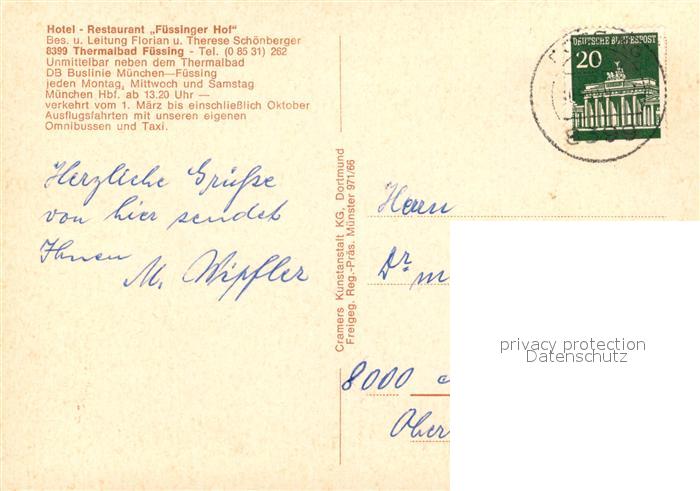 Hotel - Restaurant „Füssinger Hof"
Bes. u. Leitung Florian u. Therese Schönberger
8399 Thermalbad Füssing - Tel. (0 85 31) 262
Unmittelbar neben dem Thermalbad
DB Buslinie München—Füssing
jeden Montag, Mittwoch und Samstag
München Hbf. ab 13.20 Uhr —
verkehrt vom 1. März bis einschließlich Oktober
Ausflugsfahrten mit unseren eigenen
Omnibussen und Taxi.
Herzliche Grüße
von hier sendet
Ihnen
M. Wipfler
Cramers Kunstanstalt KG, Dortmund
Freigeg. Reg.-Präs. Münster 971/66
DEUTSCHE BUNDESPOST
20
Herrn
Dr m
8000
Ober
privacy protection
Datenschutz